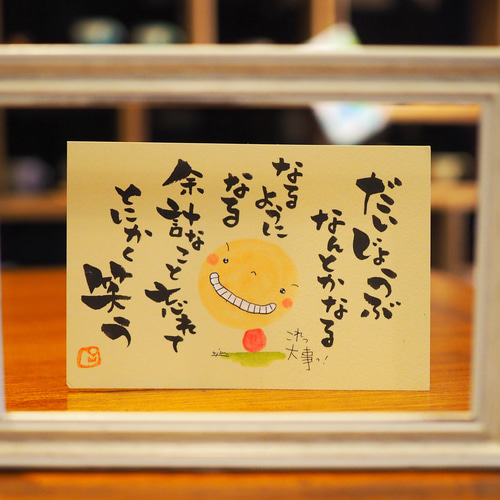 だいじょうぶ
なんとかなる
なる
ように
なる
余計なこと忘れて
とにかく笑う
これっ
大事っ!